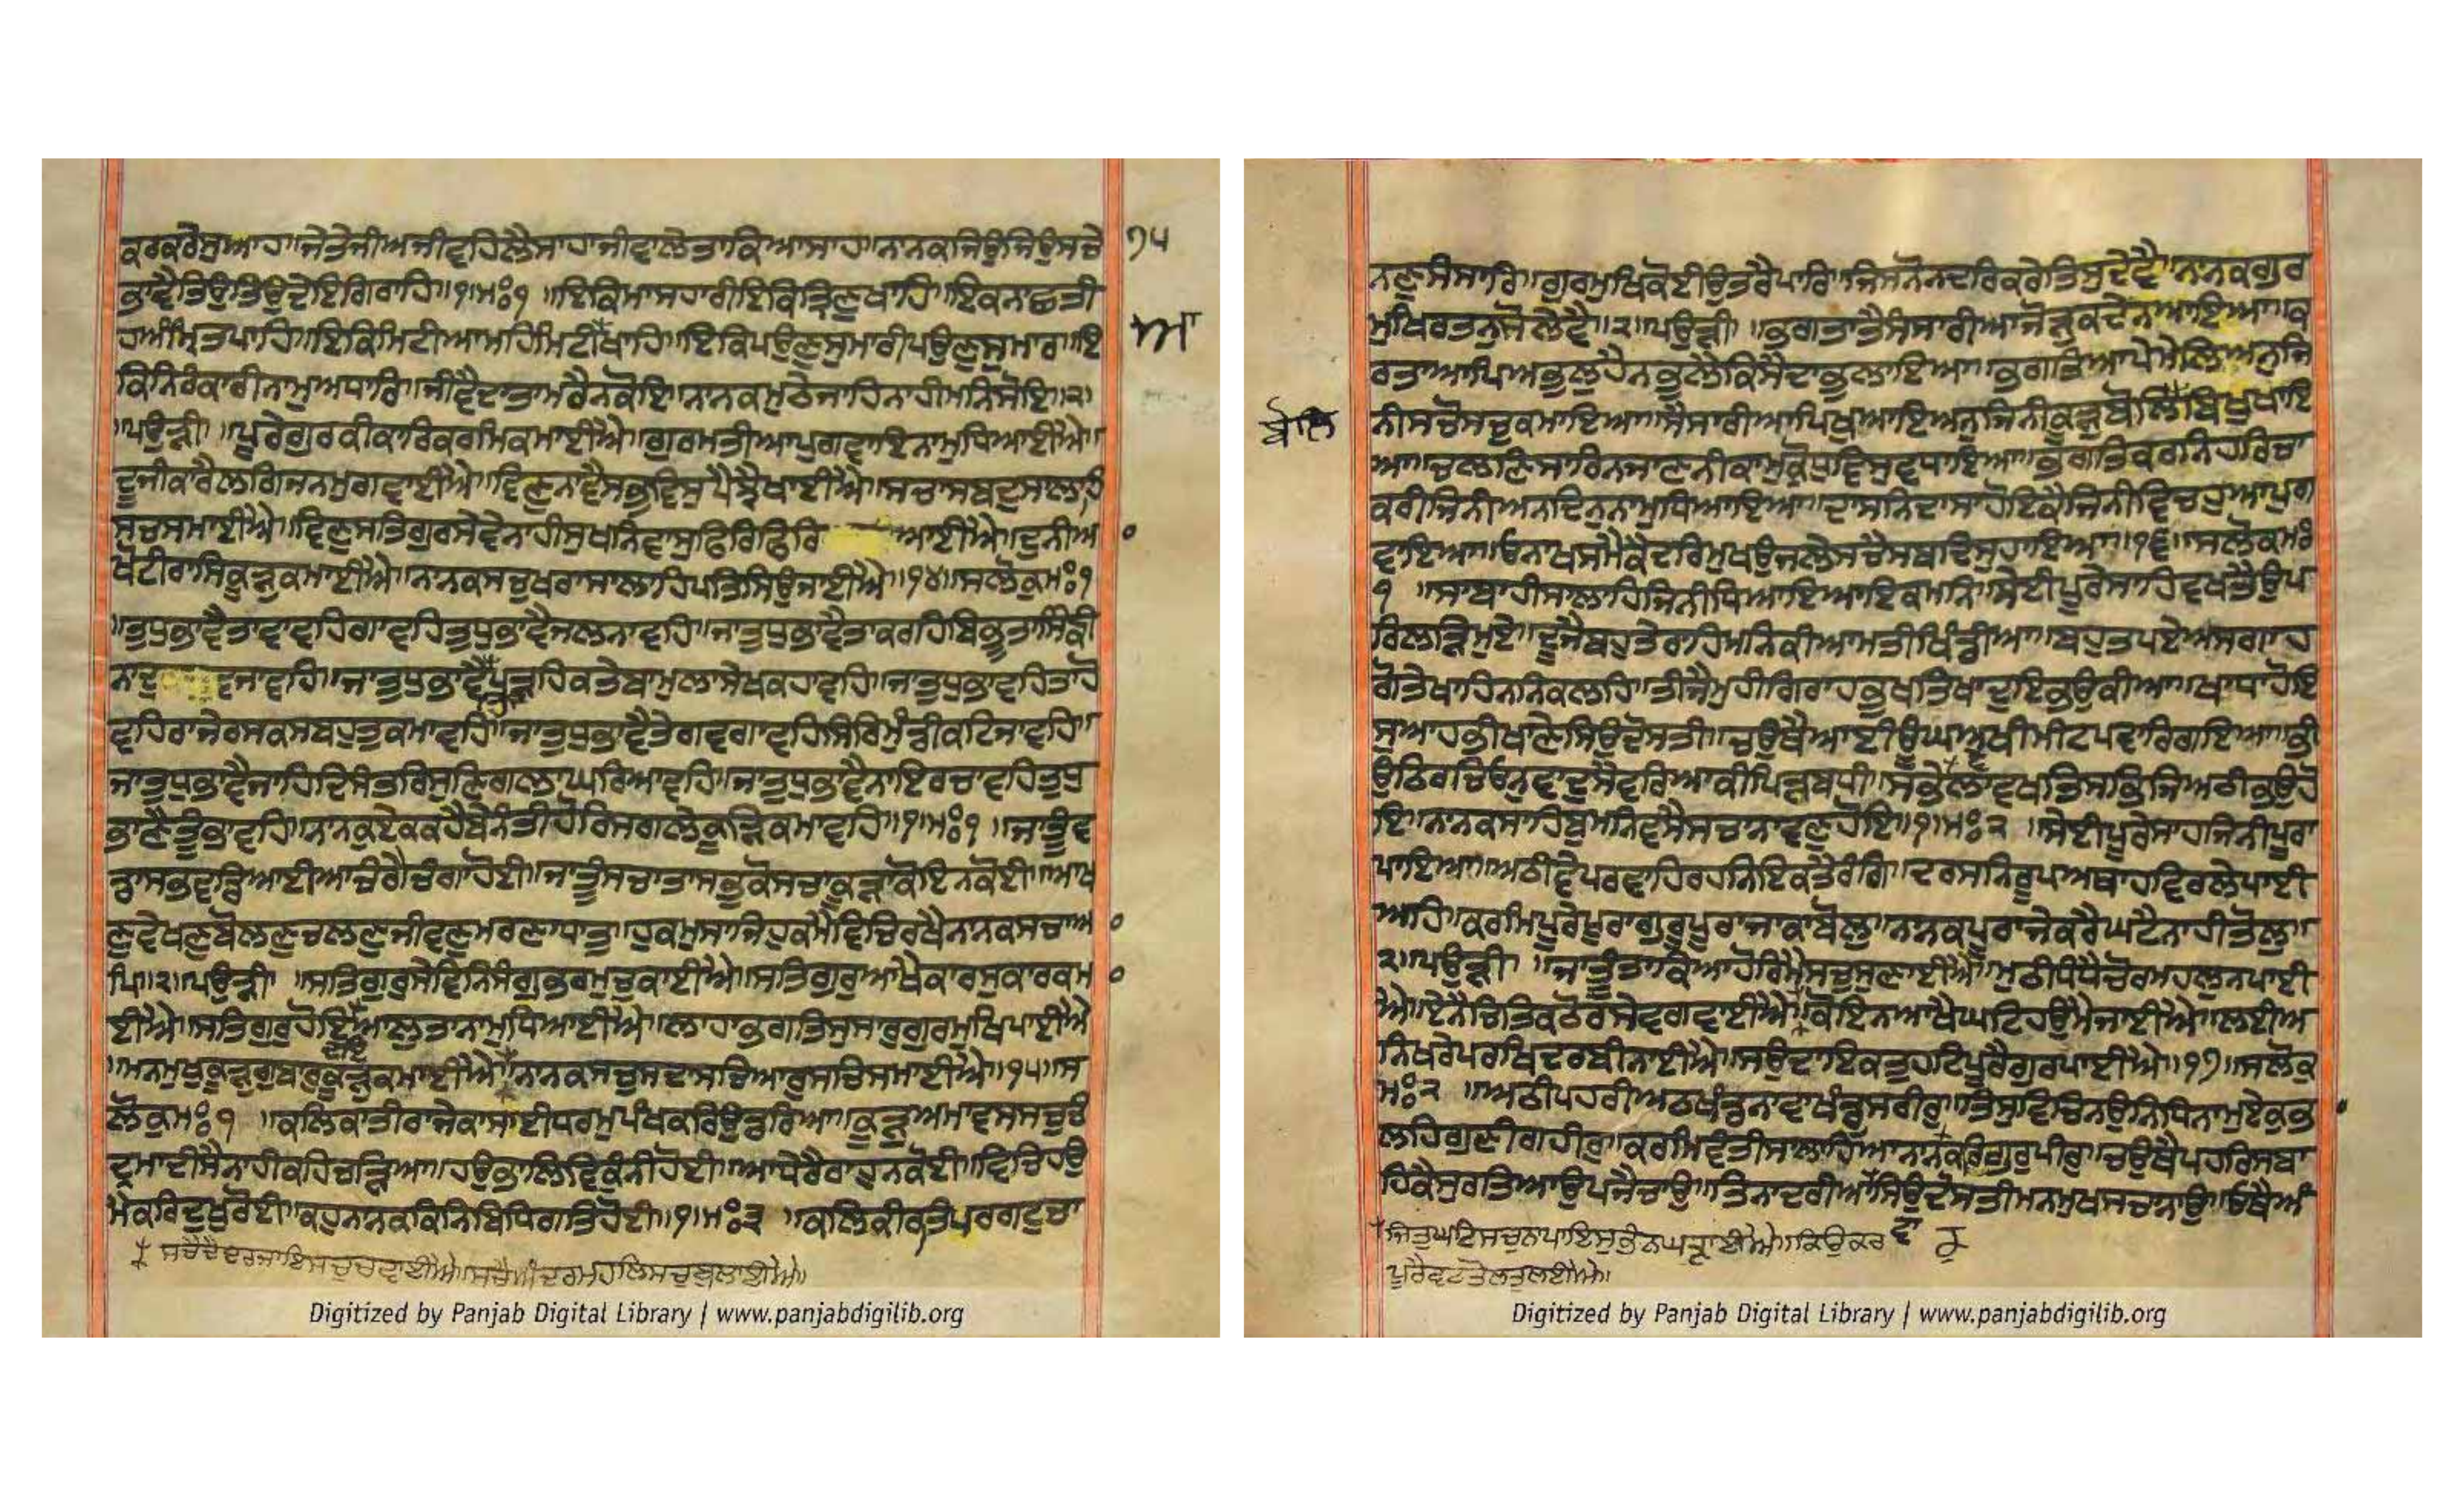 ਕਰਕਰੇਸੁਆਹ॥ਜੇਤੇਜੀਅਜੀਵਹਿਲੈਸਾਹਾਜੀਵਾਲੇਤਾਕਿਆਸਾਹ॥ਨਾਨਕਜਿਉਜਿਉਸਚੇ ੧੫
ਭਾਵੈਤਿਉਤਿਉਦੇਇਗਿਰਾਹਿ॥੧॥ਮਃ੧॥ਇਕਿਮਾਸਹਾਰੀਇਕਿਤ੍ਰਿਣੁਖਾਹਿ॥ਇਕਨਾਛਤੀ
ਹਅੰਮ੍ਰਿਤਪਾਹਿ॥ਇਕਿਮਿਟੀਆਮਹਿਮਿਟੀਖਾਹਿ॥ਇਕਿਪਉਣਸੁਮਾਰੀਪਉਣਸੁਮਾਰਾ॥ਇ
ਕਿਨਿਰੰਕਾਰੀਨਾਮੁਅਧਾਰਿ॥ਜੀਵੈਦਾਤਾਮਰੈਨਕੋਇ॥ਨਾਨਕਮੁਠੇਜਾਹਿਨਾਹੀਮਨਿਸੋਇ॥੨॥
॥ਪਉੜੀ॥ਪੂਰੇਗੁਰਕੀਕਾਰਿਕਰਮਿਕਮਾਈਐ॥ਗੁਰਮਤੀਆਪੁਗਵਾਇਨਾਮੁਧਿਆਈਐ॥
ਦੂਜੀਕਾਰੈਲਗਿਜਨਮੁਗਵਾਈਐ॥ਵਿਣੁਨਾਵੈਸਭਵਿਸੁਪੈਝੈਖਾਈਐ॥ਸਚਾਸਬਦੁਸਾਲਾਹਿ
ਸਚਸਮਾਈਐ॥ਵਿਣੁਸਤਿਗੁਰਸੇਵੇਨਾਹੀਸੁਖਨਿਵਾਸੁਫਿਰਿਫਿਰਿ ਆਈਐ॥ਦੁਨੀਆ
ਖੋਟੀਰਾਸਿਕੂੜੁਕਮਾਈਐ॥ਨਾਨਕਸਚੁਖਰਾਸਾਲਾਹਿਪਤਿਸਿਉਜਾਈਐ॥੧੪॥ਸਲੋਕੁਮਃ੧
॥ਤੁਧੁਭਾਵੈਤਾਵਾਵਹਿਗਾਵਹਿਤੁਧੁਭਾਵੈਜਲਨਾਵਹਿ॥ਜਾਤੁਧੁਭਾਵੈਤਾਕਰਹਿਬਿਭੂਤਾਸਿੰਙੀ
ਨਾਦੁ ਵਜਾਵਹਿ॥ਜਾਤੁਧੁਭਾਵੈਪੜਹਿਕਤੇਬਾਮੁਲਾਸੇਖਕਹਾਵਹਿ॥ਜਾਤੁਧੁਭਾਵਹਿਤਾਹੋ
ਵਹਿਰਾਜੇਰਸਕਸਬਹੁਤੁਕਮਾਵਹਿ॥ਜਾਤੁਧੁਭਾਵੈਤੇਗਵਗਾਵਹਿਸਿਰਿਮੁੰਡੀਕਟਿਜਾਵਹਿ॥
ਜਾਤੁਧੁਭਾਵੈਜਾਹਿਦਿਸੰਤਰਿਸੁਣਿਗਲਾਘਰਿਆਵਹਿ॥ਜਾਤੁਧੁਭਾਵੈਨਾਇਰਚਾਵਹਿਤੁਧੁ
ਭਾਣੈਤੂੰਭਾਵਹਿ॥ਨਾਨਕੁਏਕਕਹੈਬੇਨੰਤੀਹੋਰਿਸਗਲੇਕੂੜਿਕਮਾਵਹਿ॥੧॥ਮਃ੧॥ਜਾਤੂੰਵ
ਡਾਸਭਵਡਿਆਈਆਚੰਗੈਚੰਗਾਹੋਈ॥ਜਾਤੂੰਸਚਾਤਾਸਭੁਕੋਸਚਾਕੂੜਾਕੋਇਨਕੋਈ॥ਆਖ
ਣੁਵੇਖਣੁਬੋਲਣੁਚਲਣੁਜੀਵਣੁਮਰਣਾਧਾਤੁ॥ਹੁਕਮੁਸਾਜਿਹੁਕਮੈਵਿਚਿਰਖੈਨਾਨਕਸਚਾਆ
ਪਿ॥੨॥ਪਉੜੀ॥ਸਤਿਗੁਰੁਸੇਵਿਨਿਸੰਗੁਭਰਮੁਚੁਕਾਈਐ॥ਸਤਿਗੁਰੁਆਖੈਕਾਰਸੁਕਾਰਕਮ
ਈਐ॥ਸਤਿਗੁਰੁਹੋਇਆਲੁਤਨਾਮੁਧਿਆਈਐ॥ਲਾਹਾਭਗਤਿਸੁਸਾਰੁਗੁਰਮੁਖਿਪਾਈਐ
॥ਮਨਮੁਖਕੂੜੁਗੁਬਾਰੁਕੂੜੁਕਮਾਈਐ॥ਨਾਨਕਸਚੁਸਦਾਸਚਿਆਰੁਸਚਿਸਮਾਈਐ॥੧੫॥ਸ
ਲੋਕੁਮਃ੧॥ਕਲਿਕਾਤੀਰਾਜੇਕਾਸਾਈਧਰਮੁਪੰਖਕਰਿਉਡਰਿਆ॥ਕੂੜੁਅਮਾਵਸਸਚੁਚੰ
ਦ੍ਰਮਾਦੀਸੈਨਾਹੀਕਹਿਚੜਿਆ॥ਹਉਭਾਲਿਵਿਕੁੰਨੀਹੋਈ॥ਆਧੇਰੈਰਾਹੁਨਕੋਈ॥ਵਿਚਿਹਉ
ਮੈਕਰਿਦੁਖੁਰੋਈ॥ਕਹੁਨਾਨਕਕਿਨਿਬਿਧਿਗਤਿਹੋਈ॥੧॥ਮਃ੩॥ਕਲਿਕੀਰਤਿਪਰਗਟੁਚਾ
ਸਚੈਦੈਦਰਜਾਇਸਚੁਚਵਾਈਐ॥ਸਚੈਅੰਦਰਮਹਲਿਸਚੁਬੁਲਾਈਐ॥
Digitized by Panjab Digital Library | www.panjabdigilib.org
ਨਣੁਸੰਸਾਰਿ॥ਗੁਰਮੁਖਿਕੋਈਉਤਰੈਪਾਰਿ॥ਜਿਸਨੋਨਦਰਿਕਰੇਤਿਸੁਦੇਵੈ॥ਨਾਨਕਗੁਰ
ਮੁਖਿਰਤਨੁਸੋਲੇਵੈ॥੨॥ਪਉੜੀ॥ਭਗਤਾਤੈਸੰਸਾਰੀਆਜੋੜੁਕਦੇਨਆਇਆ॥ਕ
ਰਤਾਆਪਿਅਭੁਲੁਹੈਨਭੁਲੈਕਿਸੈਦਾਭੁਲਾਇਆ॥ਭਗਤਿਆਪੇਮੇਲਿਅਨੁਜਿ
ਨੀਸਚੋਸਚੁਕਮਾਇਆ॥ਸੈਸਾਰੀਆਪਿਖੁਆਇਅਨੁਜਿਨੀਕੂੜੁਬੋਲਿਬਿਖੁਖਾਇ
ਆ॥ਚਲਣਿਸਾਰਨਜਾਣਨੀਕਾਮੁਕ੍ਰੋਧੁਵਿਸੁਵਧਾਇਆ॥ਭਗਤਿਕਰਨਿਹਰਿਚਾ
ਕਰੀਜਿਨੀਅਨਦਿਨੁਨਾਮੁਧਿਆਇਆ॥ਦਾਸਨਿਦਾਸਹੋਇਕੈਜਿਨੀਵਿਚਹੁਆਪੁਗ
ਵਾਇਆ॥ਓਨਾਖਸਮੈਕੈਦਰਿਮੁਖਉਜਲੇਸਚੈਸਬਦਿਸੁਹਾਇਆ॥੧੬॥ਸਲੋਕੁਮਃ
੧॥ਸਬਾਹੀਸਾਲਾਹਿਜਿਨੀਧਿਆਇਆਇਕਮਨਿ॥ਸੇਈਪੂਰੇਸਾਹਿਵਖਤੈਉਪ
ਰਿਲੜਿਮੁਏ॥ਦੂਜੈਬਹੁਤੇਰਾਹਮਨਿਕੀਆਮਤੀਖਿੰਡੀਆ॥ਬਹੁਤੁਪਏਅਸਗਾਹ
ਗੋਤੇਖਾਹਿਨਨਿਕਲਹਿ॥ਤੀਜੈਮੁਹੀਗਿਰਾਹਭੁਖਤਿਖਾਦੁਇਭਉਕੀਆ॥ਖਾਧਾਹੋਇ
ਸੁਆਹਭੀਖਾਣੇਸਿਉਦੋਸਤੀ॥ਚਉਥੈਆਈਊਘਅਖੀਮੀਟਿਪਵਾਰਿਗਇਆ॥ਭੀ
ਉਠਿਰਚਿਓਨੁਵਾਦੁਸੈਵਰਿਆਕੀਪਿੜਬਧੀ॥ਸਭੇਵੇਲਾਵਖਤਸਭਿਜਿਅਠੀਭਉਹੋ
ਇ॥ਨਾਨਕਸਾਹਿਬੁਮਨਿਵਸੈਸਚਾਨਾਵਣੁਹੋਇ॥੧॥ਮਃ੨॥ਸੇਈਪੂਰੇਸਾਹਜਿਨੀਪੂਰਾ
ਪਾਇਆ॥ਅਠੀਵੇਪਰਵਾਹਿਰਹਨਿਇਕਤੈਰੰਗਿ॥ਦਰਸਨਿਰੂਪਅਥਾਹਵਿਰਲੇਪਾਈ
ਅਹਿ॥ਕਰਮਿਪੂਰੈਪੂਰਾਗੁਰੂਪੂਰਾਜਾਕਾਬੋਲੁ॥ਨਾਨਕਪੂਰਾਜੇਕਰੈਘਟੈਨਾਹੀਤੋਲੁ॥
੨॥ਪਉੜੀ॥ਜਾਤੂੰਤਾਕਿਆਹੋਰਿਮੈਸਚੁਸੁਣਾਈਐ॥ਮੁਠੀਧੰਧੈਚੋਰਮਹਲੁਨਪਾਈ
ਐ॥ਏਨੈਚਿਤਿਕਠੋਰਸੇਵਗਵਾਈਐ॥ਕੋਇਨਆਖੈਘਟਿਹਉਮੈਜਾਈਐ॥ਲਈਅ
ਨਿਖਰੇਪਰਖਿਦਰਬੀਨਾਈਐ॥ਸਉਦਾਇਕਤੁਹਟਿਪੂਰੈਗੁਰਪਾਈਐ॥੧੭॥ਸਲੋਕੁ
ਮਃ੨॥ਅਠੀਪਹਰੀਅਠਖੰਡਨਾਵਾਖੰਡੁਸਰੀਰੁ॥ਤਿਸੁਵਿਚਿਨਉਨਿਧਿਨਾਮੁਏਕੁਭਾ
ਲਹਿਗੁਣੀਗਹੀਰੁ॥ਕਰਮਵੰਤੀਸਾਲਾਹਿਆਨਾਨਕਕਰਿਗੁਰੁਪੀਰੁ॥ਚਉਥੈਪਹਰਿਸਬਾ
ਹਿਕੈਸੁਰਤਿਆਉਪਜੈਚਾਉ॥ਤਿਨਾਦਰੀਆਸਿਉਦੋਸਤੀਮਨਮੁਖਸਚਾਨਾਉ॥ਓਥੈਅੰ
ਜਿਤੁਘਟਿਸਚੁਨਪਾਇਸੁਭੰਨਿਘੜਾਈਐ॥ਕਿਉਕਰ
ਪੂਰੈਵਟਤੋਲਤੁਲਾਈਐ॥
Digitized by Panjab Digital Library | www.panjabdigilib.org